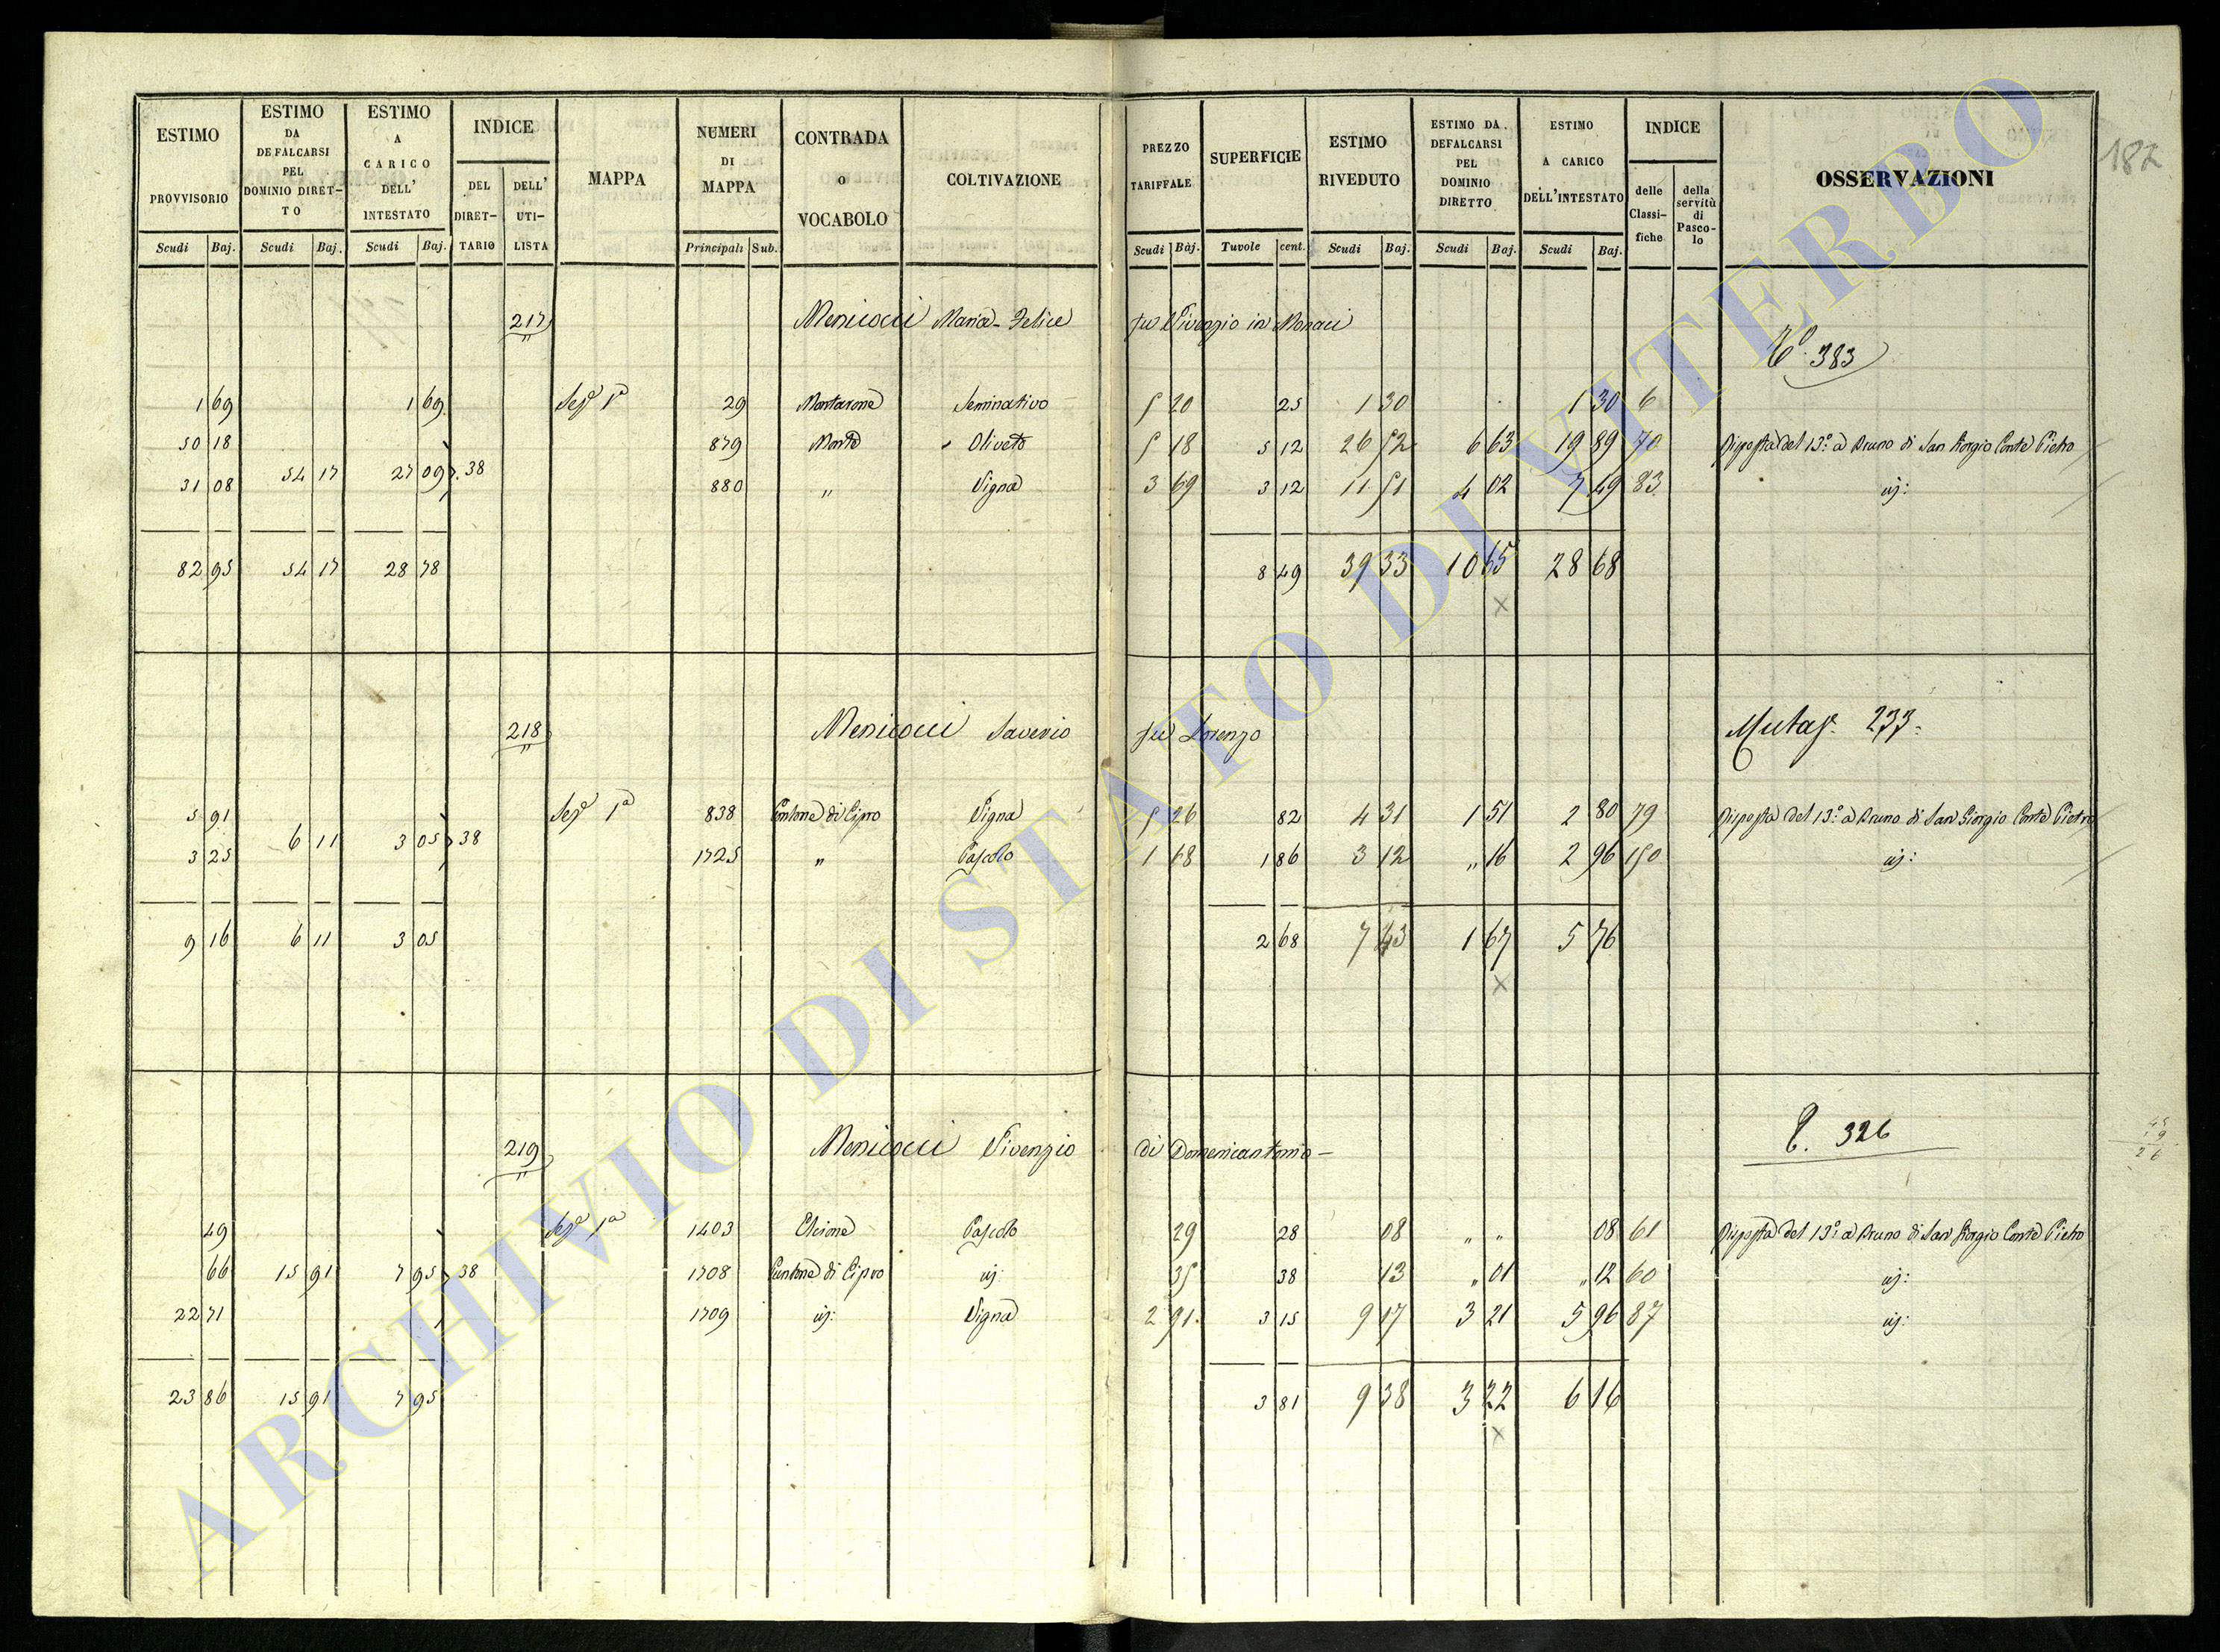 ESTIMO PROVVISORIO Scudi Baj.
ESTIMO DA DEFALCARSI PEL DOMINIO DIRETTO Scudi Baj.
ESTIMO A CARICO DELL' INTESTATO Scudi Baj.
INDICE DEL DIRETTARIO DELL' UTILISTA
MAPPA
NUMERI DI MAPPA Principali Sub.
CONTRADA o VOCABOLO
COLTIVAZIONE
PREZZO TARIFFALE Scudi Baj.
SUPERFICIE Tavole cent.
ESTIMO RIVEDUTO Scudi Baj.
ESTIMO DA DEFALCARSI PEL DOMINIO DIRETTO Scudi Baj.
ESTIMO A CARICO DELL'INTESTATO Scudi Baj.
INDICE delle Classifiche della servitù di Pascolo
OSSERVAZIONI
182
217 Menicocci Maria Felice fu Vivenzio in Monaci
383
1 69 1 69 Sezª 1ª 29 Montarone Seminativo 5 20 25 1 30 1 30 6
50 18 879 Monte Oliveto 5 18 5 12 26 52 6 63 19 89 70 Risposta del 13º a Bruno di San Giorgio Conte Pietro
54 17 27 09 38
31 08 880 " Vigna 3 69 3 12 11 51 4 02 7 49 83 id:
82 95 54 17 28 78 8 49 39 33 10 65 28 68
x
218 Menicocci Saverio fu Lorenzo
Mutaz. 233
5 91 Sezª 1ª 838 Pontone di Cipro Vigna 5 26 82 4 31 1 51 2 80 79 Risposta del 13º a Bruno di San Giorgio Conte Pietro
6 11 3 05 38
3 25 1725 " Pascolo 1 68 1 86 3 12 " 16 2 96 150 id:
9 16 6 11 3 05 2 68 7 43 1 67 5 76
x
219 Menicocci Vivenzio di Domenicantonio
326
49 Sezª 1ª 1403 Pascolo 29 28 08 " " 08 61 Risposta del 13º a Bruno di San Giorgio Conte Pietro
66 15 91 7 95 38 1708 Puntone di Cipro id: 35 38 13 " 01 " 12 60 id:
22 71 1709 id: Vigna 2 91 3 15 9 17 3 21 5 96 87 id:
23 86 15 91 7 95 3 81 9 38 3 22 6 16
x
45
19
26
ARCHIVIO DI STATO DI VITERBO